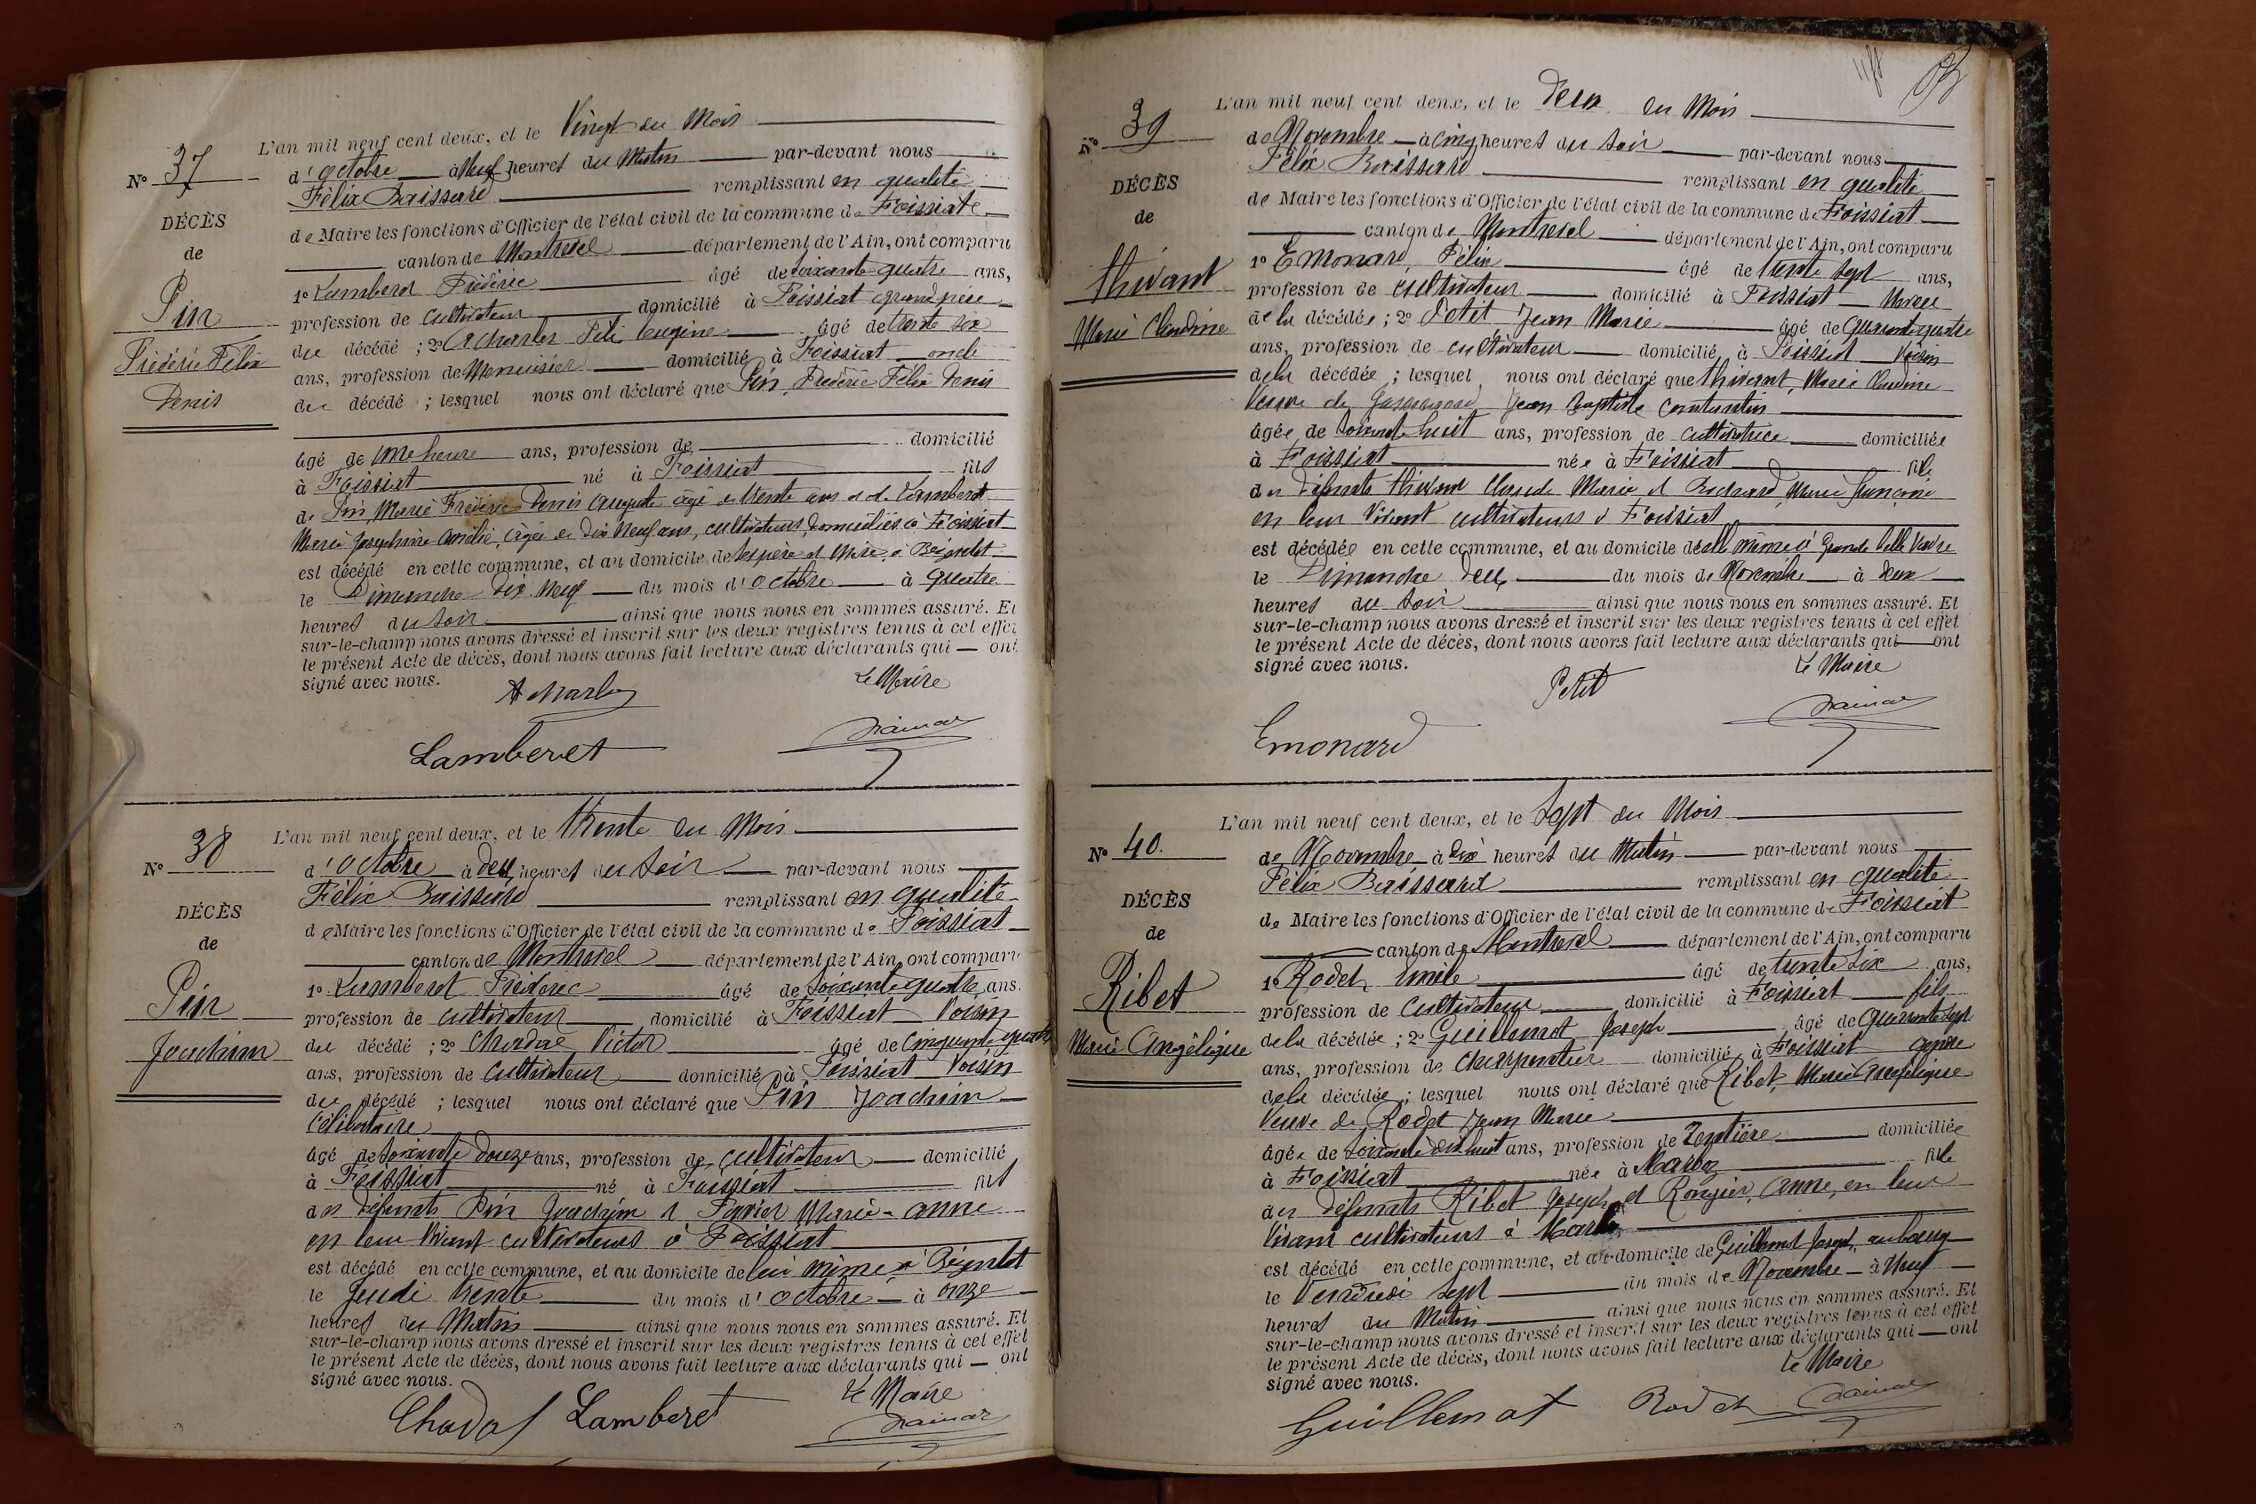 N° 37
DÉCÈS
de
Pin
Frédéric Félix
Denis
L'an mil neuf cent deux, et le Vingt du Mois
d'octobre à Neuf heures du Matin par-devant nous
Félix remplissant en qualité
de Maire les fonctions d'Officier de l'état civil de la commune de Foissiat
canton de Montrevel département de l'Ain, ont comparu
1° Lamberet Frédéric âgé de soixante quatre ans,
profession de cultivateur domicilié à Foissiat grand père
du décédé ; 2° âgé de trente six
ans, profession de Menuisier domicilié à Foissiat oncle
du décédé ; lesquel nous ont déclaré que Pin, Frédéric Félix Denis
âgé de une heure ans, profession de domicilié
à Foissiat né à Foissiat fils
de Pin, Marie Frédéric Denis Auguste âgé de trente ans et de Lamberet
Marie Joséphine Amélie, âgée de dix neuf ans, cultivateurs, domiciliés à Foissiat
est décédé en cette commune, et au domicile de ses père et mère à
le Dimanche dix neuf du mois d'octobre à quatre
heures du soir ainsi que nous nous en sommes assuré. Et
sur-le-champ nous avons dressé et inscrit sur les deux registres tenus à cet effet
le présent Acte de décès, dont nous avons fait lecture aux déclarants qui — ont
signé avec nous.
Le Maire
Lamberet
N° 38
DÉCÈS
de
Pin
Joachim
L'an mil neuf cent deux, et le trente du Mois
d'octobre à deux heures du soir par-devant nous
Félix remplissant en qualité
de Maire les fonctions d'Officier de l'état civil de la commune de Foissiat
canton de Montrevel département de l'Ain, ont comparu
1° Lamberet Frédéric âgé de soixante quatre ans.
profession de cultivateur domicilié à Foissiat Voisin
du décédé ; 2° Victor âgé de cinquante quatre
ans, profession de cultivateur domicilié à Foissiat Voisin
du décédé ; lesquel nous ont déclaré que Pin Joachim
Célibataire
âgé de soixante douze ans, profession de cultivateur domicilié
à Foissiat né à Foissiat fils
des défunts Pin Joachim et Marie-anne
en leur vivant cultivateurs à Foissiat
est décédé en cette commune, et au domicile de lui même à
le Jeudi trente du mois d'octobre à onze
heures du Matin ainsi que nous nous en sommes assuré. Et
sur-le-champ nous avons dressé et inscrit sur les deux registres tenus à cet effet
le présent Acte de décès, dont nous avons fait lecture aux déclarants qui — ont
signé avec nous.
Le Maire
Lamberet
N° 39
DÉCÈS
de
thivant
Marie Claudine
L'an mil neuf cent deux, et le deux du Mois
de Novembre à cinq heures du soir par-devant nous
Félix remplissant en qualité
de Maire les fonctions d'Officier de l'état civil de la commune de Foissiat
canton de Montrevel département de l'Ain, ont comparu
1° Emonard, Félix âgé de trente sept ans,
profession de cultivateur domicilié à Foissiat Neveu
de la décédée ; 2° Petit Jean Marie âgé de quarante quatre
ans, profession de cultivateur domicilié à Foissiat Voisin
de la décédée ; lesquel nous ont déclaré que thivant, Marie Claudine
Veuve de Jean Baptiste Constantin
âgée de soixante huit ans, profession de cultivatrice domiciliée
à Foissiat née à Foissiat fille
des défunts thivant Claude Marie et Marie Françoise
en leur vivant cultivateurs à Foissiat
est décédée en cette commune, et au domicile d'elle même à Grande
le Dimanche deux du mois de Novembre à deux
heures du soir ainsi que nous nous en sommes assuré. Et
sur-le-champ nous avons dressé et inscrit sur les deux registres tenus à cet effet
le présent Acte de décès, dont nous avons fait lecture aux déclarants qui — ont
signé avec nous.
Petit
Le Maire
Emonard
N° 40.
DÉCÈS
de
Ribet
Marie Angélique
L'an mil neuf cent deux, et le Sept du Mois
de Novembre à dix heures du Matin par-devant nous
Félix remplissant en qualité
de Maire les fonctions d'Officier de l'état civil de la commune de Foissiat
canton de Montrevel département de l'Ain, ont comparu
1° Rodet, Emile âgé de trente six ans,
profession de cultivateur domicilié à Foissiat fils
de la décédée ; 2° Guillemot Joseph âgé de quarante sept
ans, profession de charpentier domicilié à Foissiat gendre
de la décédée ; lesquel nous ont déclaré que Ribet, Marie Angélique
Veuve de Rodet Jean Marie
âgée de soixante dix huit ans, profession de Rentière domiciliée
à Foissiat née à Marboz fille
des défunts Ribet Joseph et Anne, en leur
vivant cultivateurs à Marboz
est décédé en cette commune, et au domicile de Guillemot Joseph, au bourg
le Vendredi sept du mois de Novembre à Neuf
heures du Matin ainsi que nous nous en sommes assuré. Et
sur-le-champ nous avons dressé et inscrit sur les deux registres tenus à cet effet
le présent Acte de décès, dont nous avons fait lecture aux déclarants qui — ont
signé avec nous.
Le Maire
Guillemot Rodet